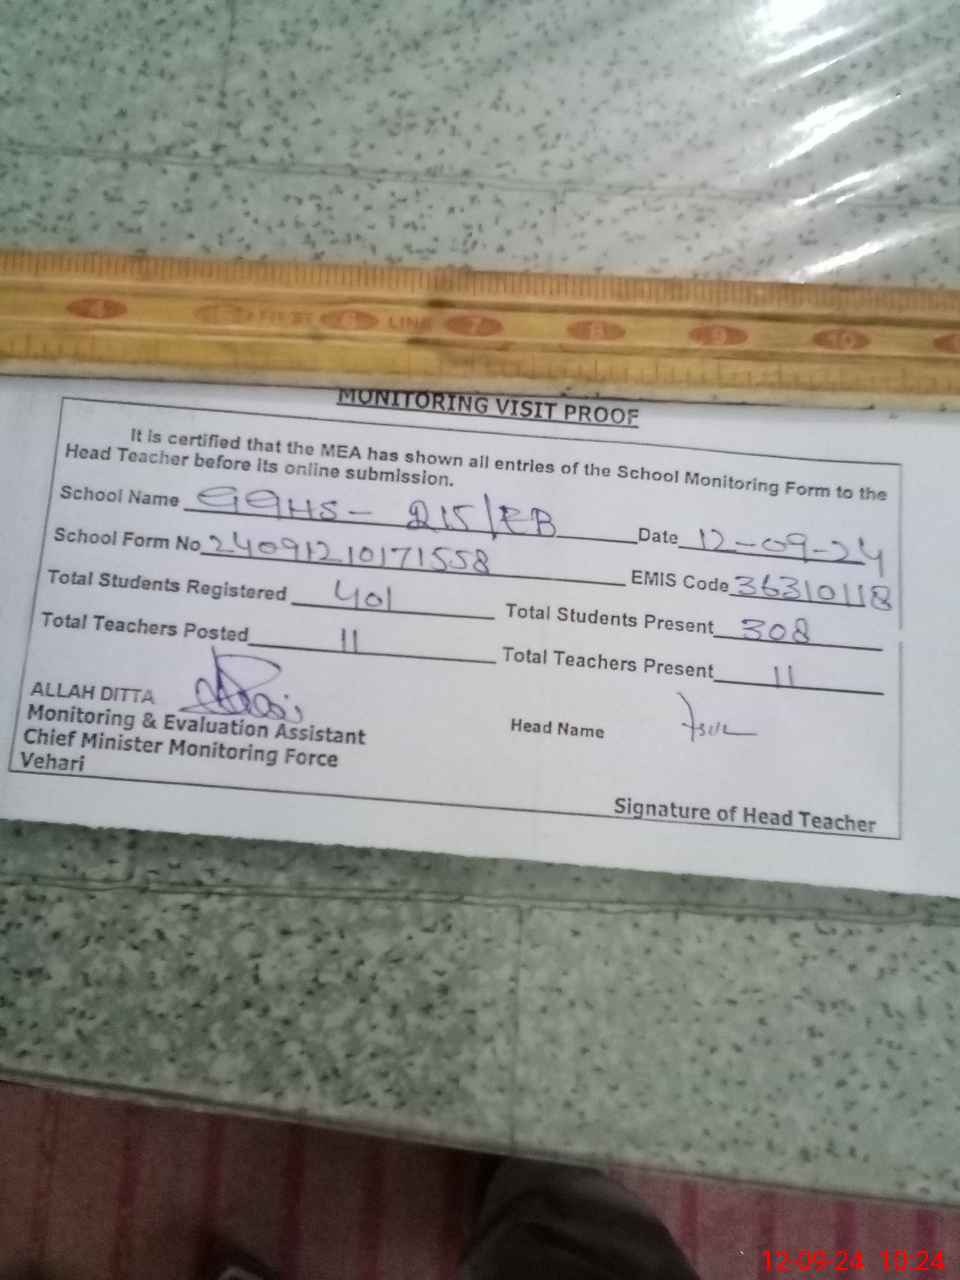 4 5 FIRST 6 LINE 7 8 9 10
MONITORING VISIT PROOF
It is certified that the MEA has shown all entries of the School Monitoring Form to the
Head Teacher before its online submission.
School Name GGHS - 215/EB Date 12-09-24
School Form No 24091210171558 EMIS Code 36310118
Total Students Registered 401 Total Students Present 308
Total Teachers Posted 11 Total Teachers Present 11
ALLAH DITTA
Monitoring & Evaluation Assistant Head Name
Chief Minister Monitoring Force
Vehari
Signature of Head Teacher
12-09-24 10:24